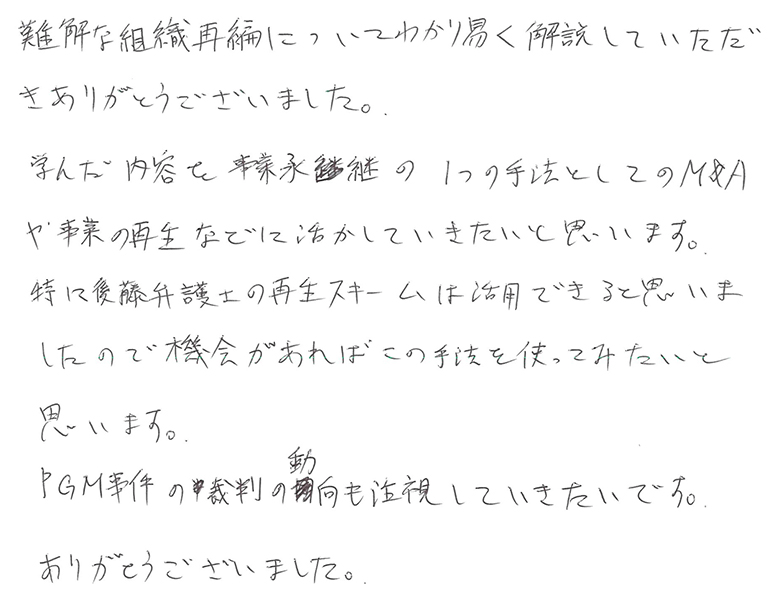 難解な組織再編についてわかり易く解説していただ
きありがとうございました。
学んだ内容を事業承継の1つの手法としてのM&A
や事業の再生などに活かしていきたいと思います。
特に後藤弁護士の再生スキームは活用できると思いま
したので機会があればこの手法を使ってみたいと
思います。
PGM事件の裁判の動向も注視していきたいです。
ありがとうございました。